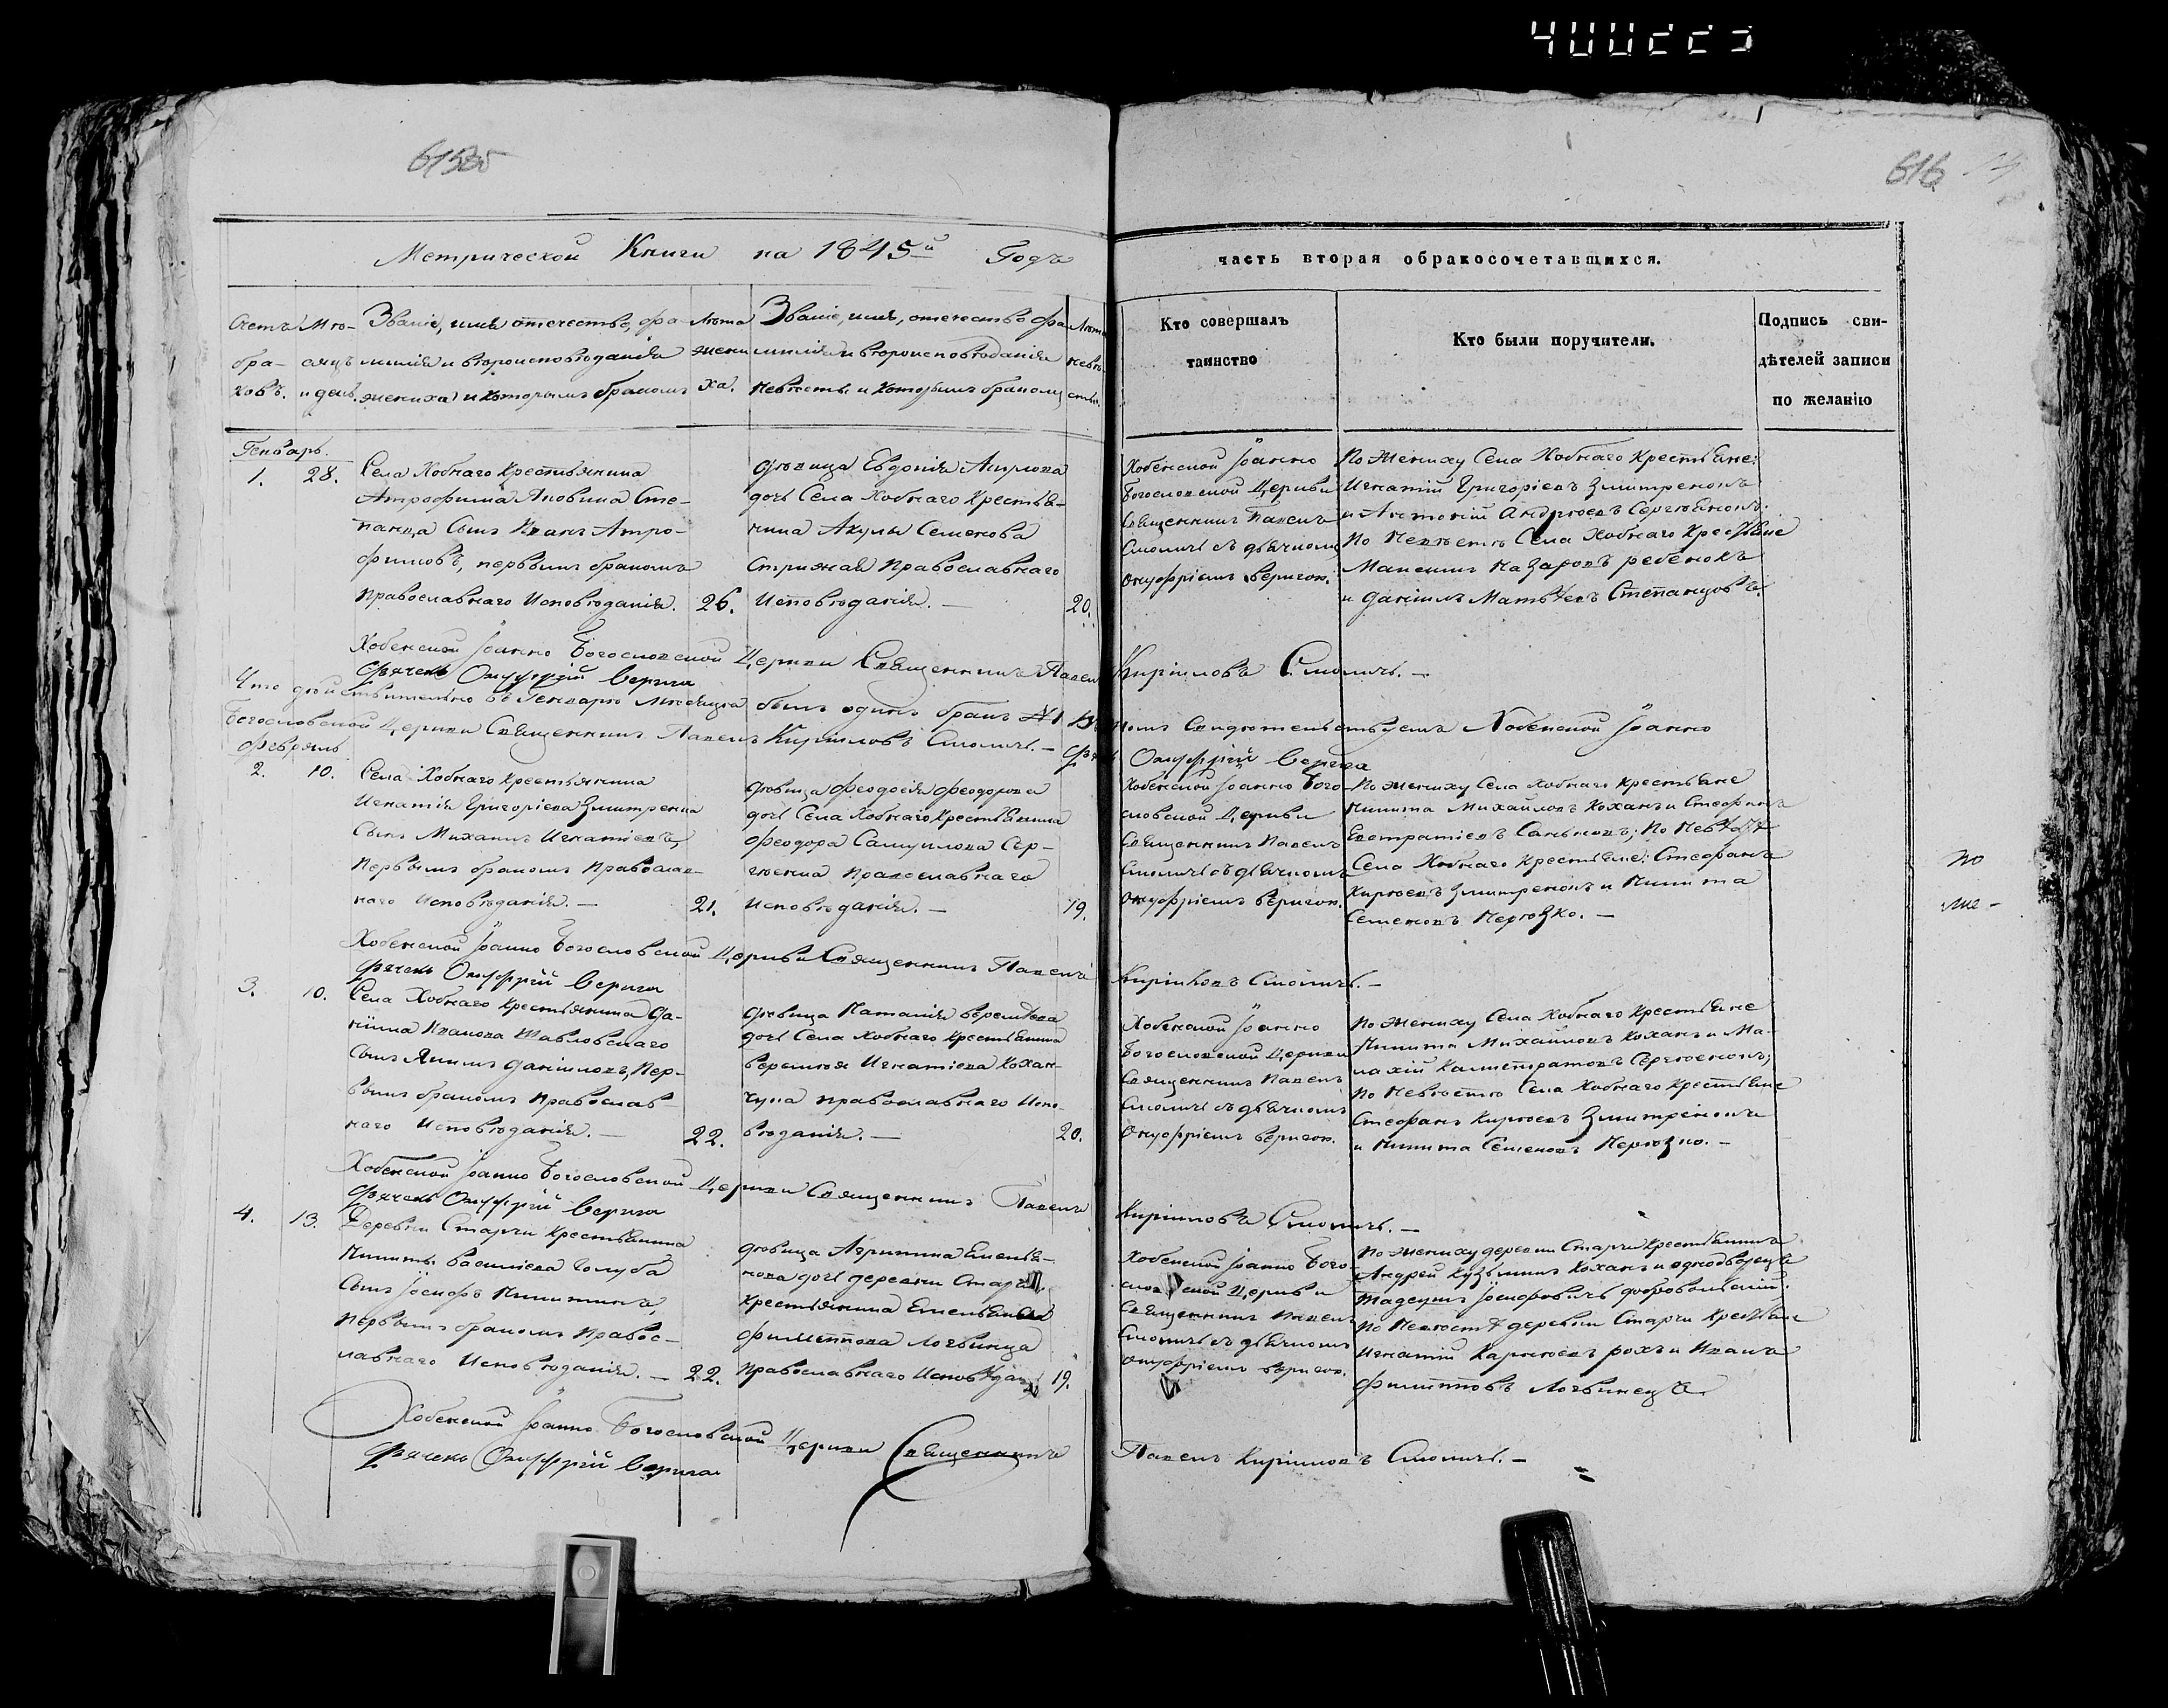 616
Метрической Книги на 1845й Годъ
часть вторая обракосочетавшихся.
Счетъ бра- ковъ.
Мѣ- сяцъ и день.
Званіе, имя отечество, фа-
милія и вѣроисповѣданія
жениха и которымъ бракомъ
Лѣта жени ха.
Званіе, имя, отечество фа
милія и вѣроисповѣданія
Невѣсты. и которымъ бракомъ
Лѣта невѣ сты.
Кто совершалъ
таинство
Кто были поручители.
Подпись сви-
дѣтелей записи
по желанію
Генварь.
1. 28.
Села Хобнаго Крестьянина
Сте-
панца Сынъ Иванъ Атро-
фимовъ, первымъ бракомъ
Православнаго Исповѣданія. 26.
Дѣвица Евдокія Акулова
дочь Села Хобнаго Крестья-
нина Акулы Семенова
Стрижака Православнаго
Исповѣданія. — 20.
Хобенской Іоанно
Богословской Церкви
Священникъ Павелъ
Смоличь съ дьячкомъ
Онуфріемъ Веригою.
По Жениху Села Хобнаго Крестьяне:
Игнатій Григоріевъ Змитренокъ
и Антоній Андреевъ Сергѣенокъ.
По Невѣстѣ Села Хобнаго Крестьяне
Максимъ Назаровъ ребенокъ
и Даніилъ Матвѣевъ Степанцовъ.
Хобенской Іоанно Богословской Церкви Священникъ Павелъ Кириловъ Смоличь. —
Дьячекъ Онуфрій Верига
Что дѣйствительно въ Генварѣ Мѣсяцѣ былъ одинъ бракъ №1 въ томъ Свидѣтельствуемъ Хобенской Іоанно
Богословской Церкви Священникъ Павелъ Кириловъ Смоличь. — Дьячекъ Онуфрій Верига
Февраль
2. 10.
Села Хобнаго Крестьянина
Игнатія Григоріева Змитренка
Сынъ Михаилъ Игнатіевъ,
Первымъ бракомъ Православ-
наго Исповѣданія. — 21.
Дѣвица Феодосія Феодорова
дочь Села Хобнаго Крестьянина
Феодора Самуилова Сер-
гѣенка Православнаго
Исповѣданія. — 19.
Хобенской Іоанно Бого-
словской Церкви
Священникъ Павелъ
Смоличь съ дьячкомъ
Онуфріемъ Веригою.
По Жениху Села Хобнаго Крестьяне
Никита Михайловъ Коханъ и Стефанъ
Евстратіевъ Саньковъ; По Невѣстѣ
Села Хобнаго Крестьяне: Стефанъ
Кирѣевъ Змитренокъ и Никита
Семеновъ Мерѣзко. —
Хобенской Іоанно Богословской Церкви Священникъ Павелъ Кириловъ Смоличь. —
Дьячекъ Онуфрій Верига
3. 10.
Села Хобнаго Крестьянина Да-
ніила Иванова Шавловскаго
Сынъ Якимъ Даніиловъ, Пер-
вымъ бракомъ Православ-
наго Исповѣданія. — 22.
Дѣвица Наталія Веремѣева
дочь Села Хобнаго Крестьянина
Веремѣя Игнатіева Кохан-
чука Православнаго Испо-
вѣданія. — 20.
Хобенской Іоанно
Богословской Церкви
Священникъ Павелъ
Смоличь съ дьячкомъ
Онуфріемъ Веригою.
По Жениху Села Хобнаго Крестьяне
Никита Михайловъ Коханъ и Ма-
лахій Калистратовъ Сергѣенокъ;
По Невѣстѣ Села Хобнаго Крестьяне
Стефанъ Кирѣевъ Змитренокъ
и Никита Семеновъ Мерѣзко. —
Хобенской Іоанно Богословской Церкви Священникъ Павелъ Кириловъ Смоличь. —
Дьячекъ Онуфрій Верига
4. 13.
Деревни Старчи Крестьянина
Никиты Василіева Голуба
Сынъ Іосифъ Никитинъ,
Первымъ бракомъ Правос-
лавнаго Исповѣданія. — 22.
Дѣвица Агрипина Емелья-
нова дочь деревни Старчи
Крестьянина Емельяна
Филиппова Логвинца
Православнаго Исповѣдан 19.
Хобенской Іоанно Бого-
словской Церкви
Священникъ Павелъ
Смоличь съ дьячкомъ
Онуфріемъ Веригою.
По Жениху деревни Старчи Крестьянинъ
Андрей Кузьминъ Коханъ и однодворецъ
Тадеушъ Іосифовичъ Добровольскій.
По Невѣстѣ деревни Старчи Крестьяне
Игнатій Карнѣевъ рохъ и Иванъ
Филипповъ Логвинецъ.
Хобенской Іоанно Богословской Церкви Священникъ Павелъ Кириловъ Смоличь. —
Дьячекъ Онуфрій Верига